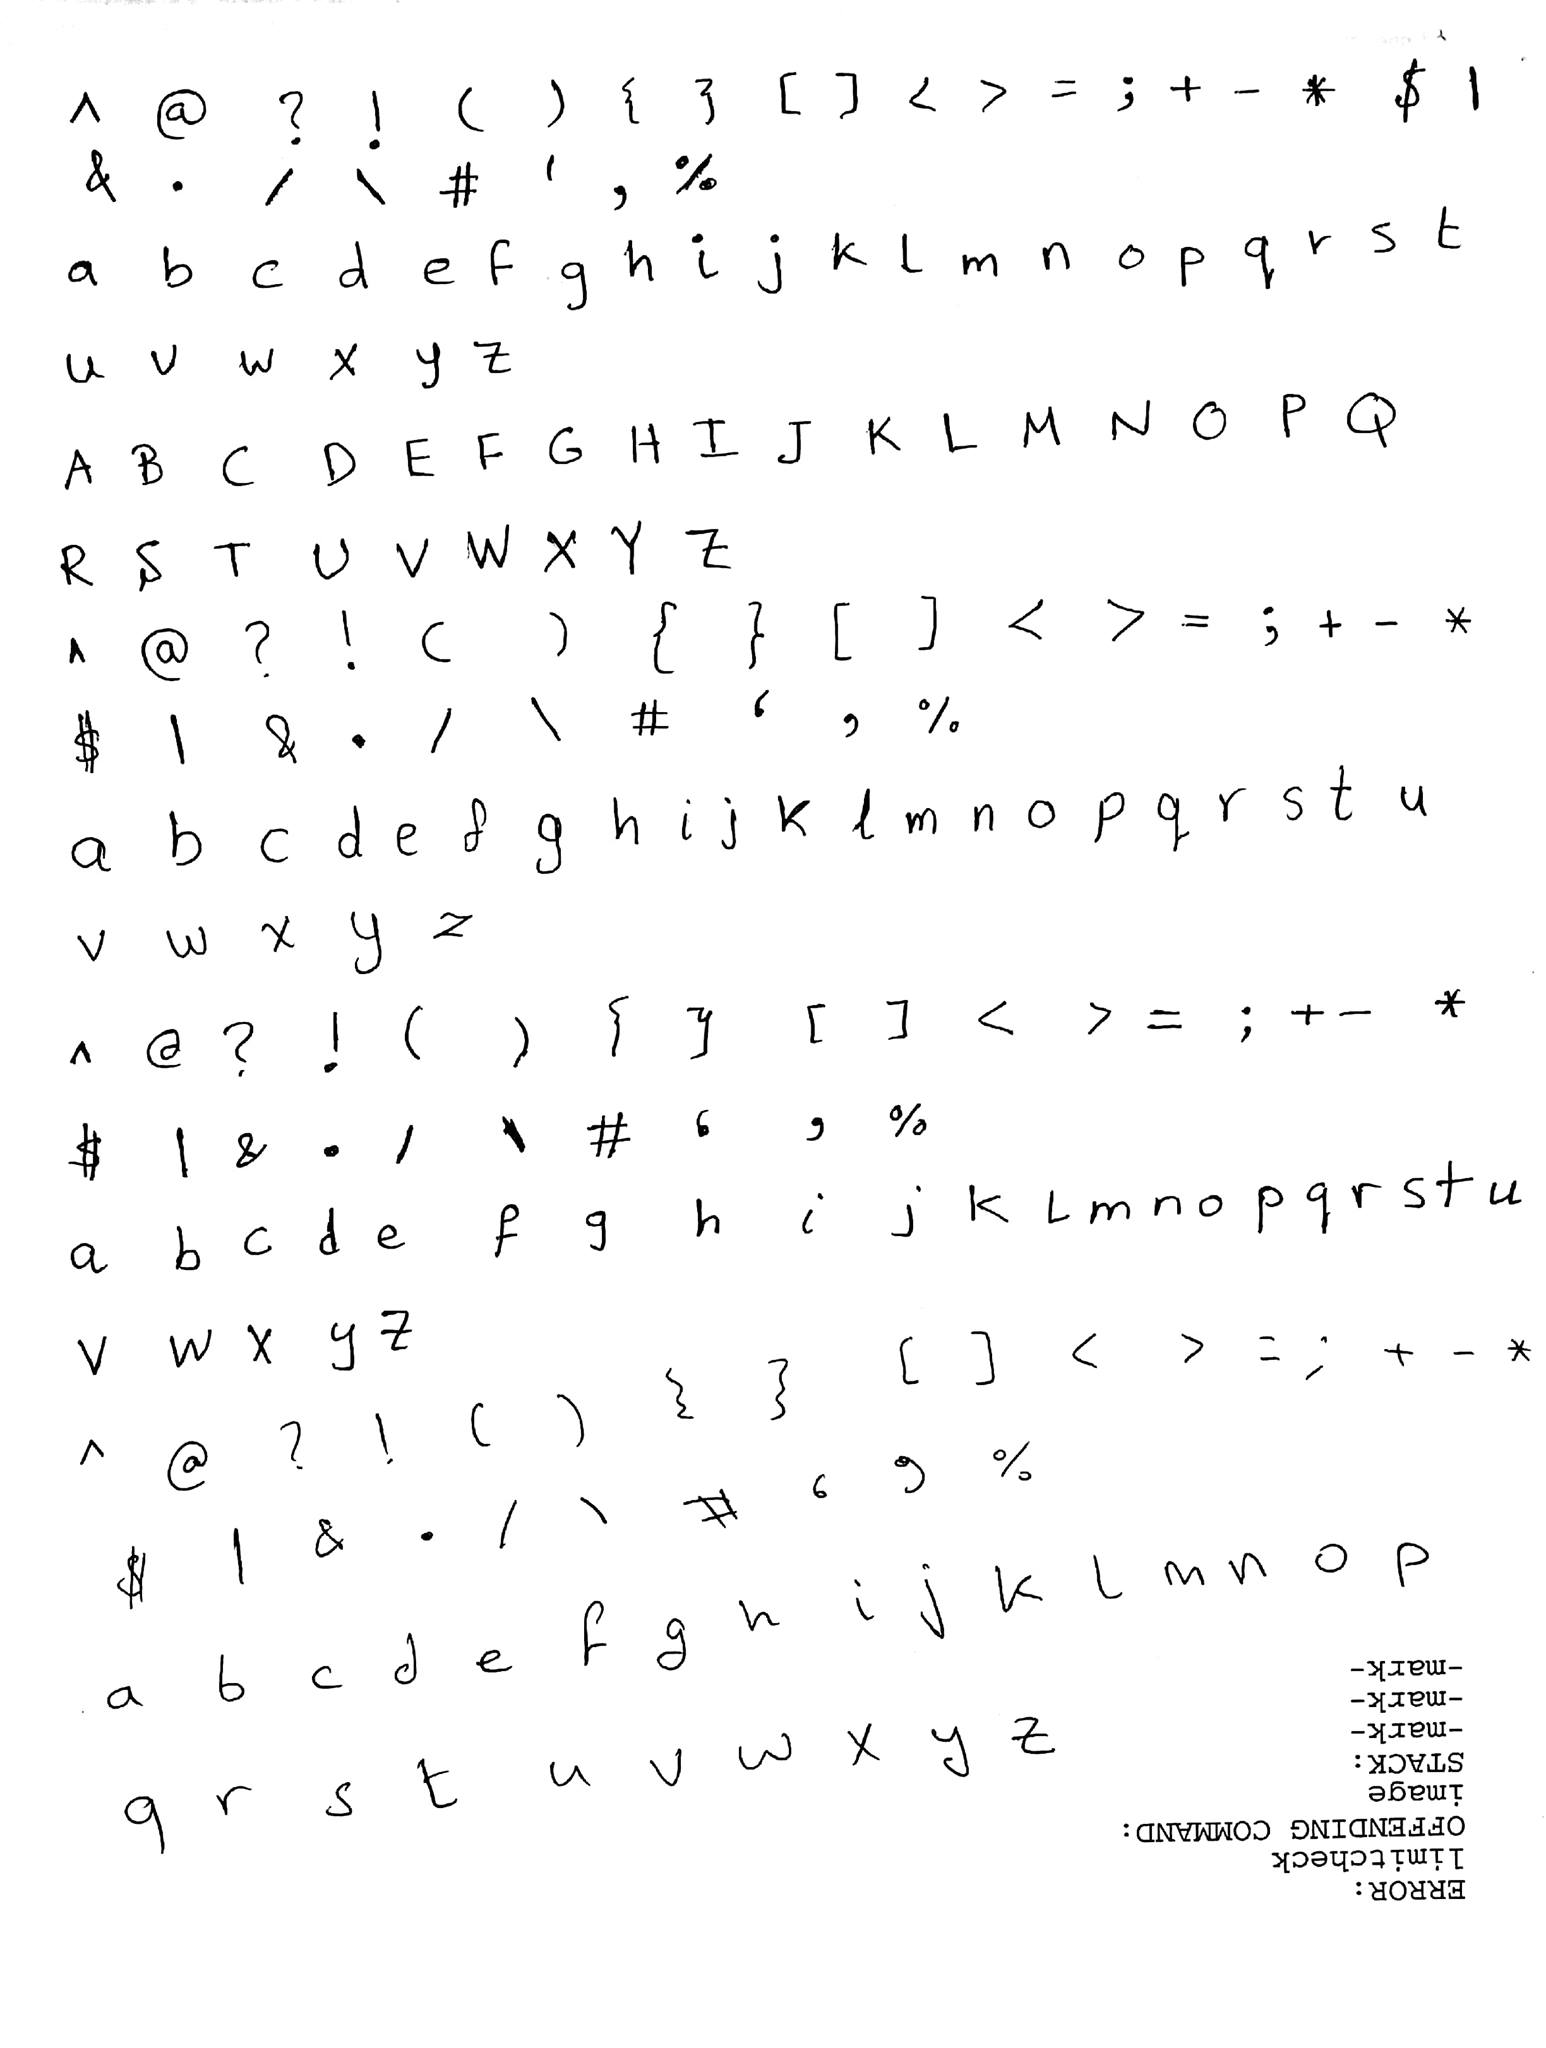 ^ @ ? ! ( ) { } [ ] < > = ; + - * $ |
& . / \ # ‘ , %
a b c d e f g h i j k l m n o p q r s t
u v w x y z
A B C D E F G H I J K L M N O P Q
R S T U V W X Y Z
^ @ ? ! ( ) { } [ ] < > = ; + - *
$ | & . / \ # ‘ , %
a b c d e f g h i j k l m n o p q r s t u
v w x y z
^ @ ? ! ( ) { } [ ] < > = ; + - *
$ | & . / \ # ‘ , %
a b c d e f g h i j k l m n o p q r s t u
v w x y z
^ @ ? ! ( ) { } [ ] < > = ; + - *
$ | & . / \ # ‘ , %
a b c d e f g h i j k l m n o p
q r s t u v w x y z
ERROR:
limitcheck
OFFENDING COMMAND:
image
STACK:
-mark-
-mark-
-mark-